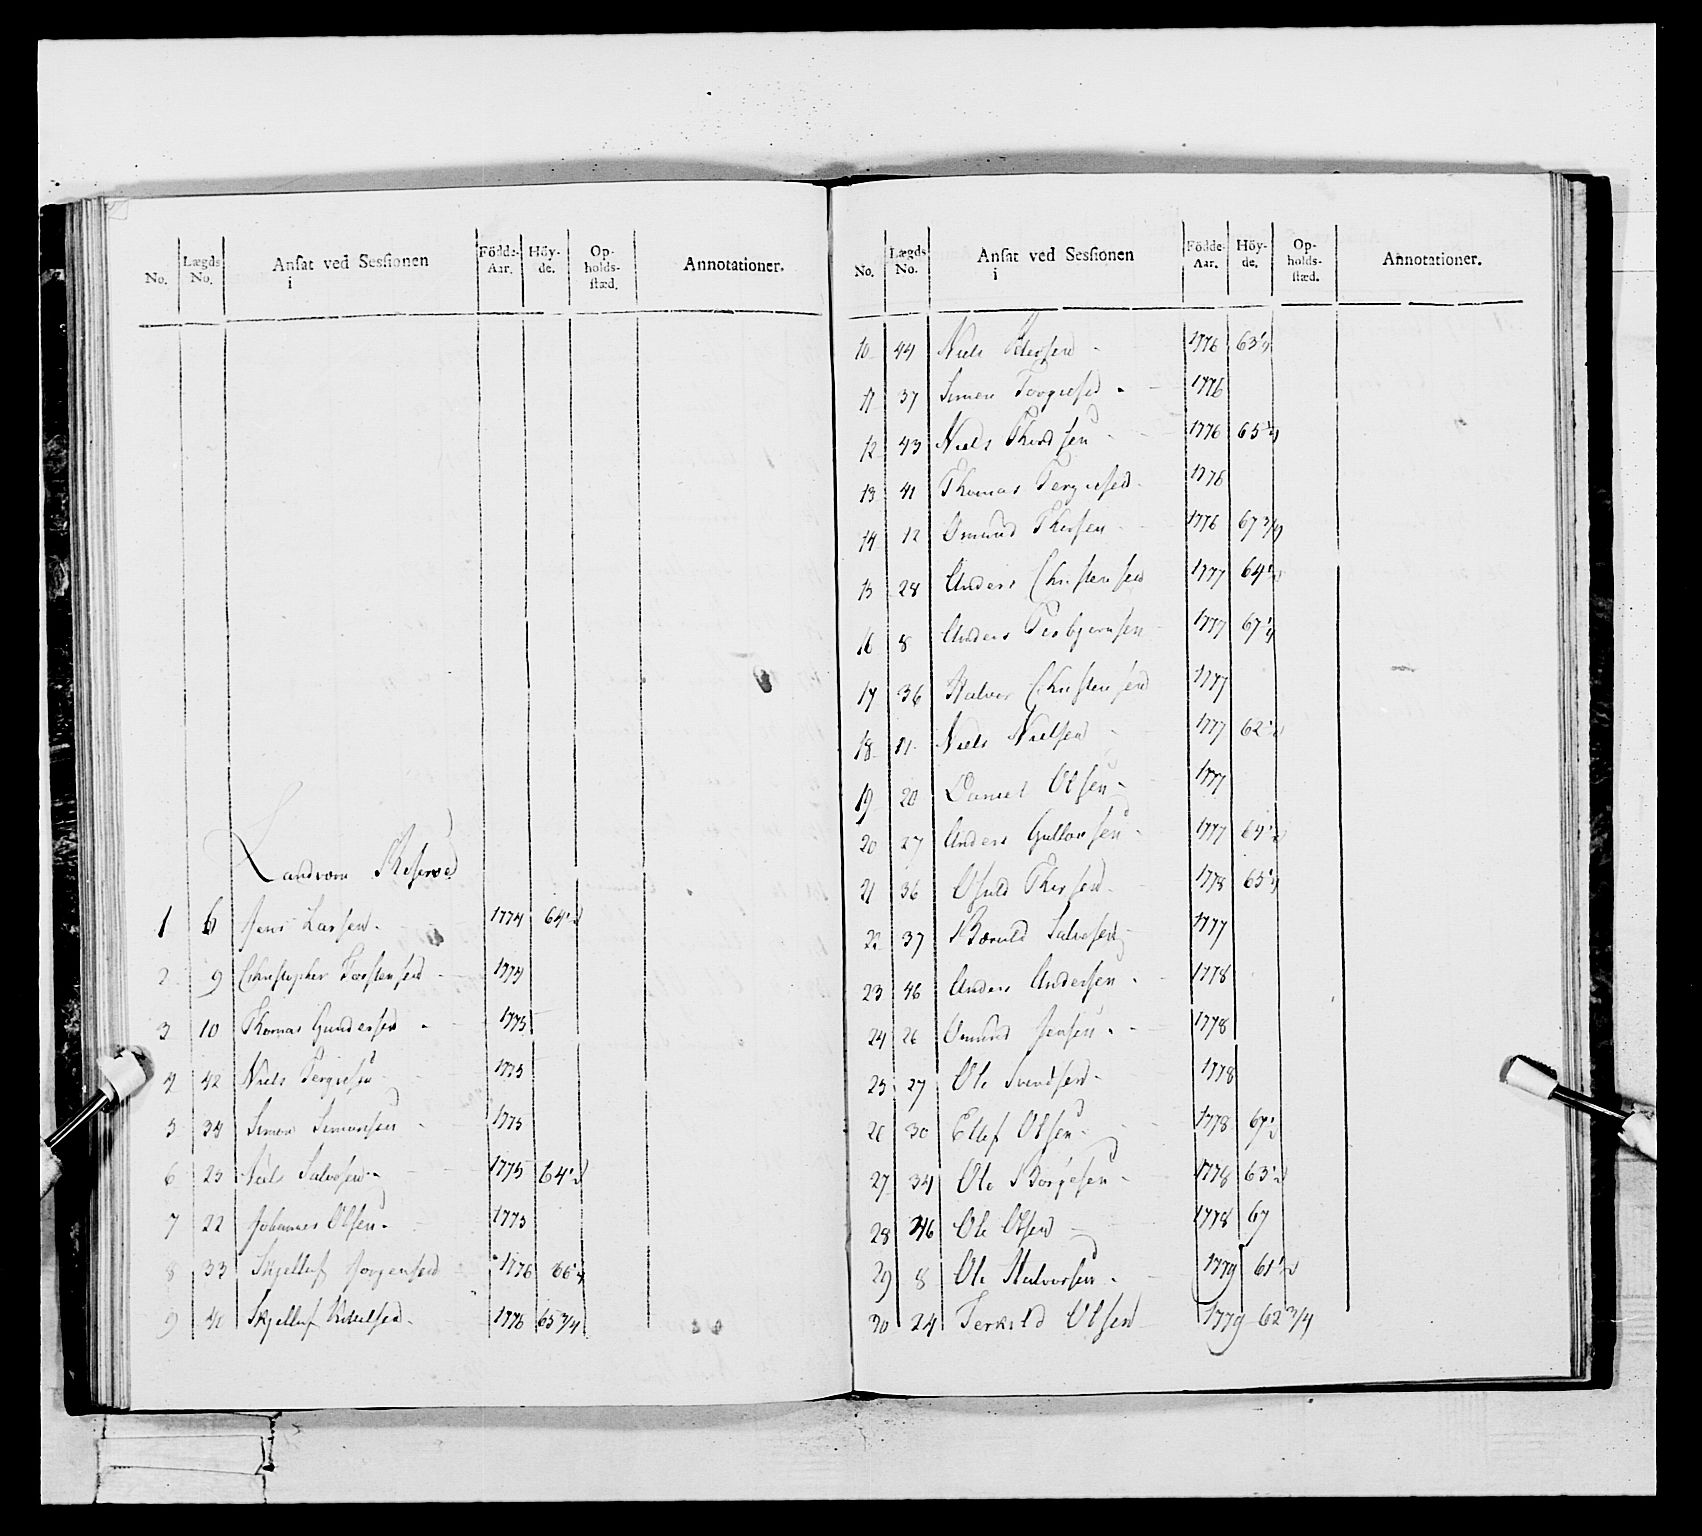 No. Lægds No. Ansat ved Sessionen i Födde-Aar. Höy-de. Op-holds-stæd. Annotationer.
Landværn Reserve
1 6 Jens Larsen. 1774 64½
2 9 Christopher Torstensen 1774
3 10 Thomas Gundersen 1775
4 42 Niels Tergiesen 1775
5 34 Simon Simonsen 1775
6 23 Niels Salvesen 1775 64½
7 22 Johannes Olsen. 1775
8 33 Skjelluf Jørgensen 1776 66¼
9 41 Skjelluf 1776 65 3/4
No. Lægds No. Ansat ved Sessionen i Födde-Aar. Höy-de. Op-holds-stæd. Annotationer.
10 44 Niels Pedersen 1776 63¼
11 37 Simon 1776
12 43 Niels 1776
13 41 Thomas Tergiesen 1776
14 12 Omund 1776 67 3/4
15 28 Anders Christensen 1777 64½
16 8 Anders Torbjørnsen 1777 67¼
17 36 Halvor Christensen 1777
18 11 Niels Nielsen 1777 62½
19 20 Daniel Olsen 1777
20 27 Anders Gullovsen 1777 64½
21 36 Osuld 1778
22 37 Salvesen 1777
23 46 Anders Andersen 1778
24 26 Omund Jensen 1778
25 27 Ole Svendsen 1778
26 30 Ellef Olsen 1778 67½
27 34 Ole Børgesen 1778 63½
28 46 Ole Olsen 1778 67
29 8 Ole Halvorsen 1779 61½
30 24 Terkild Olsen 1779 62 3/4